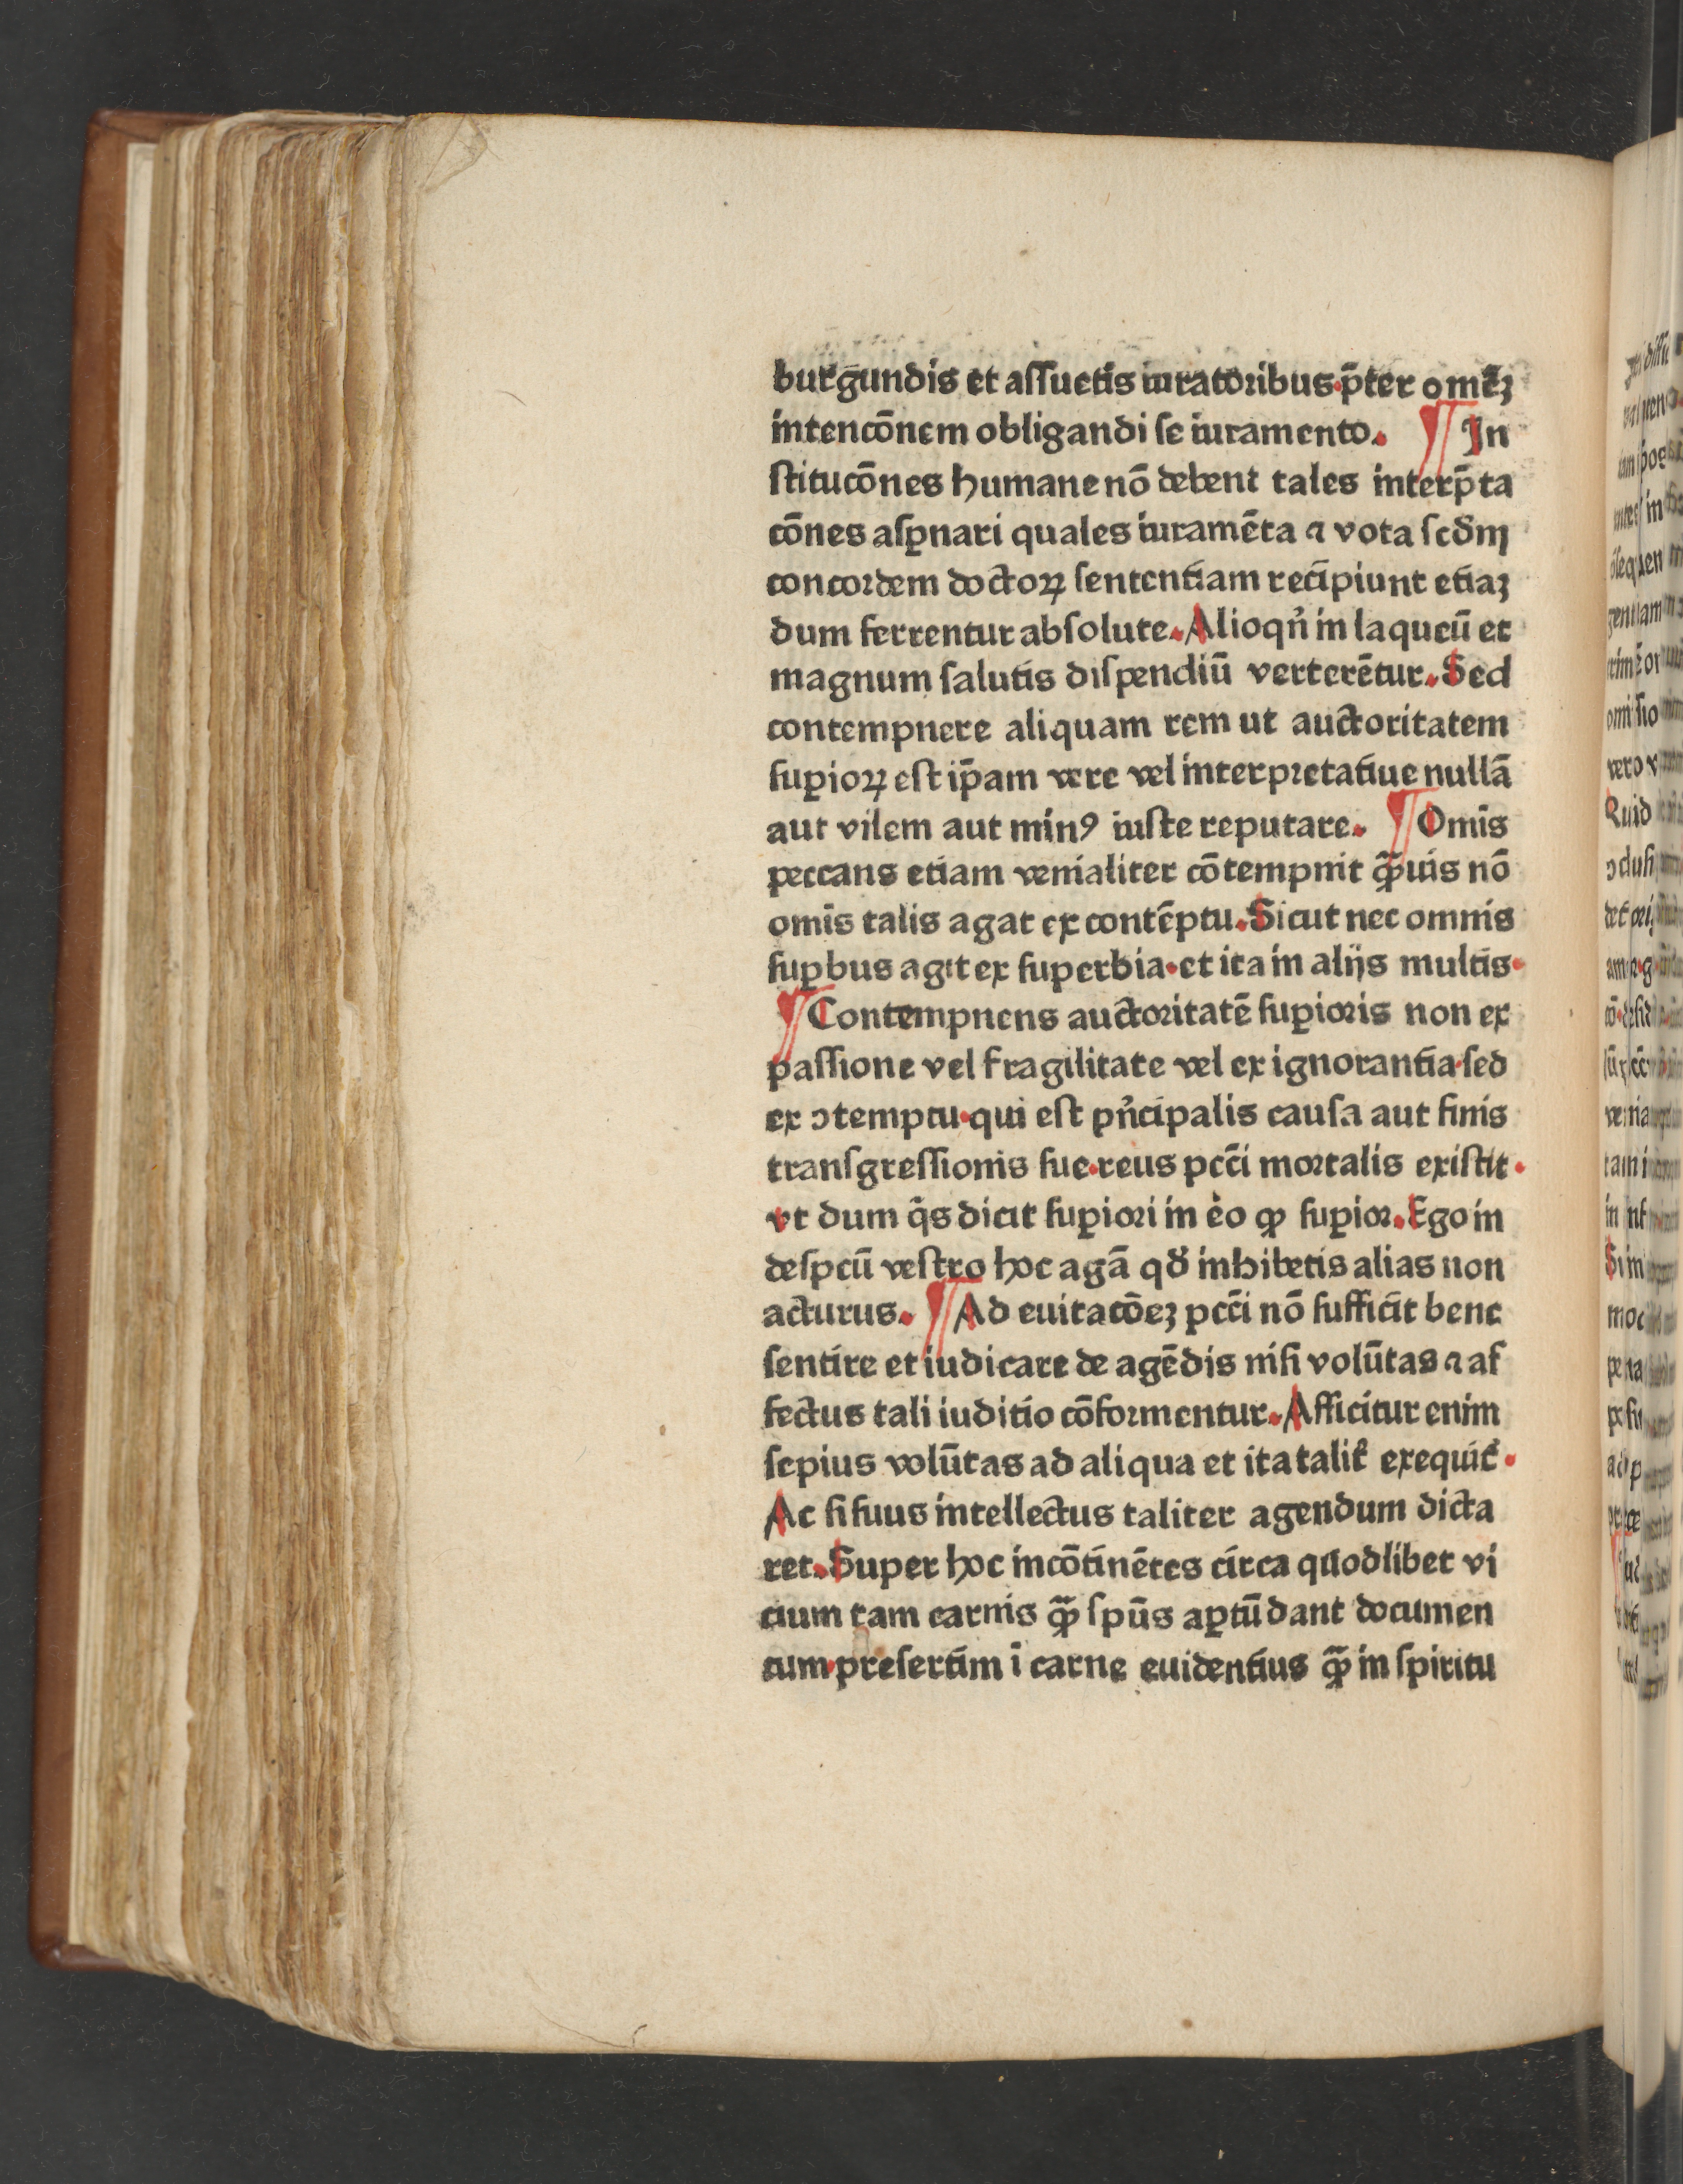 burgundis et aſſuetis iuratoribus·p̄ter omēʒ
intencōnem obligandi ſe iuramento. ¶ In
ſtitucōnes humane nō debent tales interp̄ta
cōnes aſꝑnari quales iuramēta ⁊ vota ſcd̄m
concordem doctoꝝ ſententiam recipiunt etiaʒ
dum ferrentur absolute. Alioqn̄ in laqueū et
magnum ſalutis diſpendiū verterētur. Sed
contempnere aliquam rem ut auctoritatem
ſuꝑioꝝ eſt ip̄am vere vel interpretatiue nullā
aut vilem aut minꝯ iuſte reputare. ¶ Omīs
peccans etiam venialiter cōtempnit ꝙ̄uis nō
omīs talis agat ex contēptu. Sicut nec omnis
ſuꝑbus agit ex ſuperbia·et ita in alijs multis·
¶ Contempnens auctoritatē ſuꝑioris non ex
paſſione vel fragilitate vel ex ignorantia·ſed
ex ↄtemptu·qui eſt pn̄cipalis cauſa aut finis
tranſgreſſionis ſue·reus pcc̄i mortalis exiſtit·
vt dum q̄s dicit ſuꝑiori in eo ꝙ ſuꝑior. Ego in
deſpcū veſtro hoc agā qd̄ inhibetis alias non
acturus. ¶ Ad euitacōeʒ pcc̄i nō ſufficit bene
ſentire et iudicare de agēdis niſi volūtas ⁊ af
fectus tali iuditio cōformentur. Afficitur enim
ſepius volūtas ad aliqua et ita talit̄ exequit̄·
Ac ſi ſuus intellectus taliter agendum dicta
ret. Super hoc incōtinētes circa quodlibet vi
cium tam carnis ꝙ̄ ſpūs aꝑtū dant documen
tum·preſertim ī carne euidentius ꝙ̄ in ſpiritu